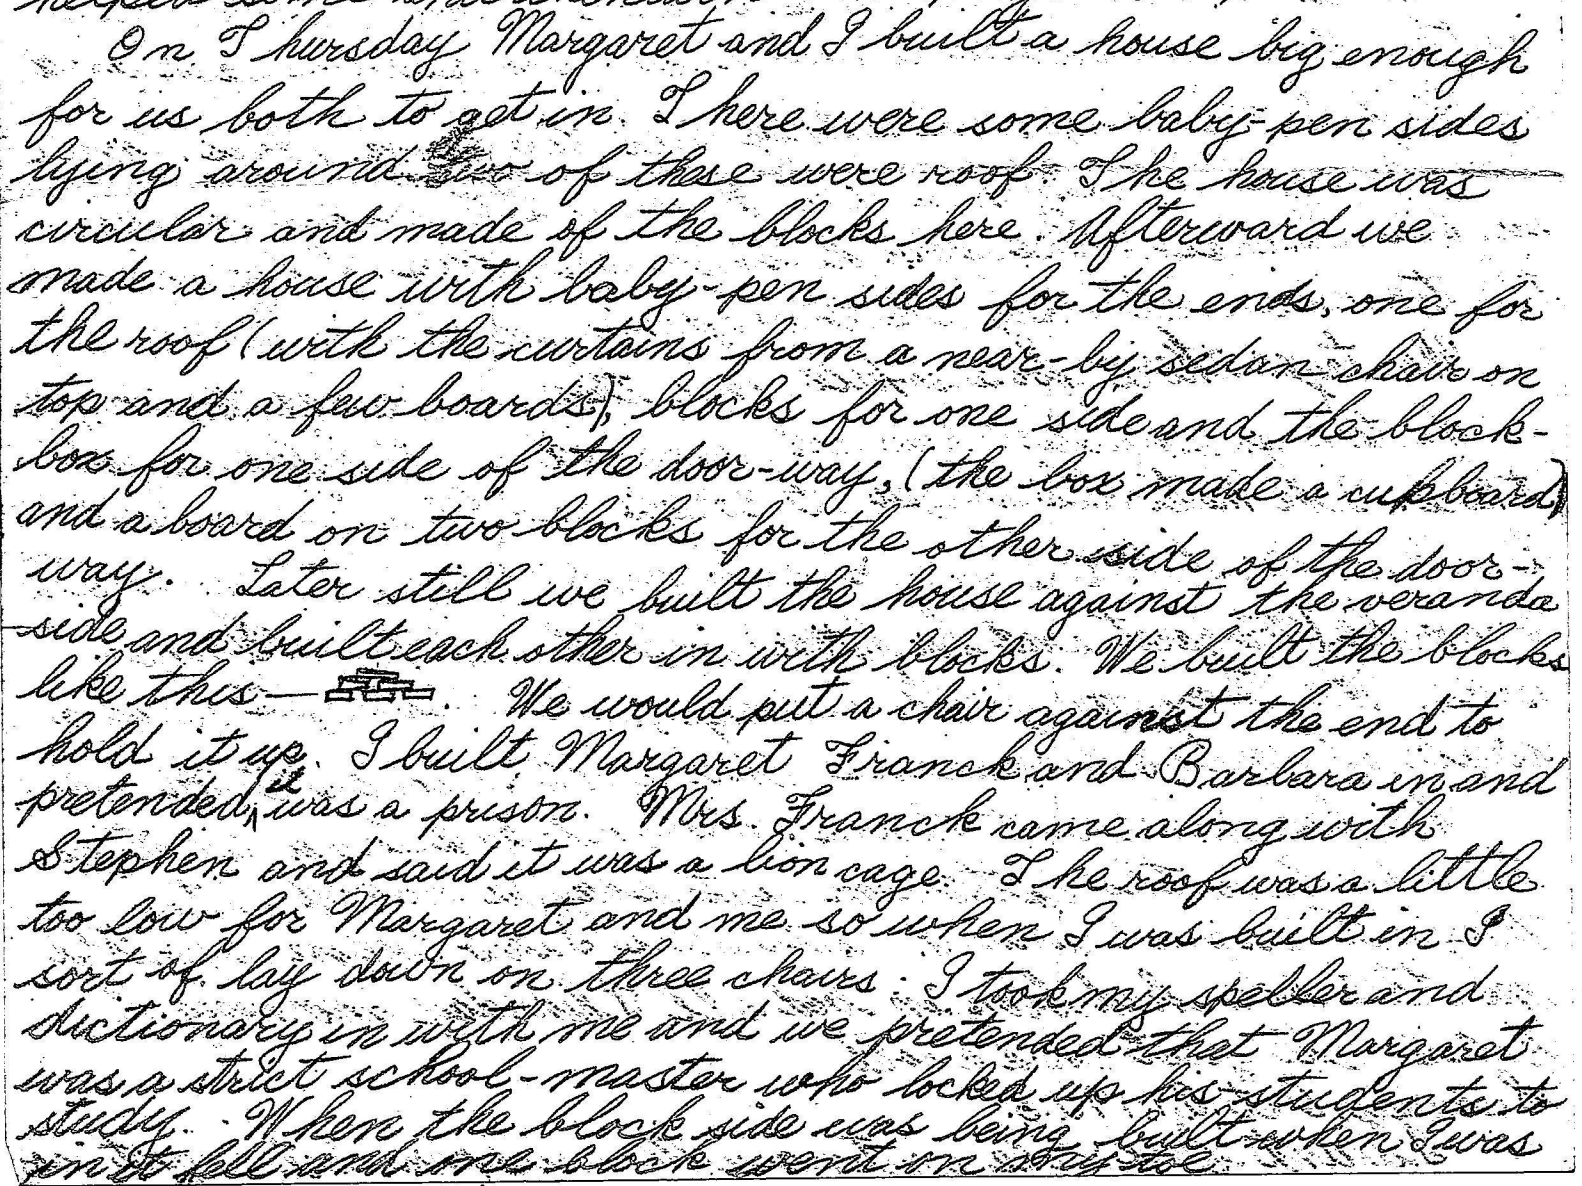 helped some
On Thursday Margaret and I built a house big enough
for us both to get in. There were some baby-pen sides
lying around two of these were roof. The house was
circular and made of the blocks here. Afterward we
made a house with baby-pen sides for the ends, one for
the roof (with the curtains from a near-by sedan chair on
top and a few boards), blocks for one side and the block-
box for one side of the door-way, (the box made a cupboard)
and a board on two blocks for the other side of the door-
way. Later still we built the house against the veranda
side and built each other in with blocks. We built the blocks
like this — . We would put a chair against the end to
hold it up. I built Margaret Franck and Barbara in and
pretended it was a prison. Mrs. Franck came along with
Stephen and said it was a lion cage. The roof was a little
too low for Margaret and me so when I was built in I
sort of lay down on three chairs. I took my speller and
dictionary in with me and we pretended that Margaret
was a strict school-master who locked up his students to
study. When the block side was being built when I was
in it fell and one block went on my toe